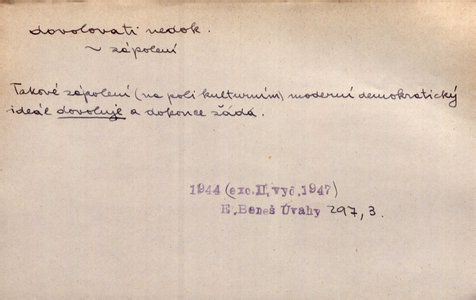 dovolovati nedok.
~ zápolení
Takové zápolení (na poli kulturním) moderní demokratický
ideál dovoluje a dokonce žádá.
1944 (exc.II, vyč.1947)
E.Beneš Úvahy 297, 3.